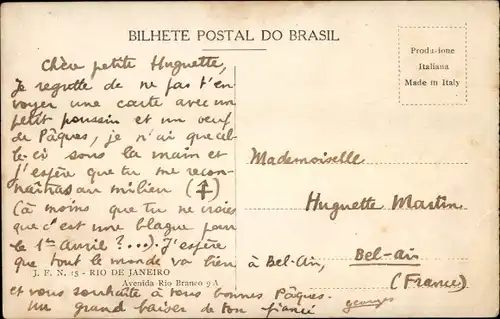 BILHETE POSTAL DO BRASIL
Produzione
Italiana
Made in Italy
Chère petite Huguette,
Je regrette de ne pas t'en-
voyer une carte avec un
petit poussin et un oeuf
de Pâques, je n'ai que cel-
le-ci sous la main et
j'espère que tu me recon-
naîtras au milieu (↑)
(à moins que tu ne crois
que c'est une blague pour
le 1er Avril ?...). J'espère
que tout le monde va bien
et vous souhaite à tous bonnes Pâques.
Un grand baiser de ton fiancé
georges
J. F. N. 15 - RIO DE JANEIRO
Avenida Rio Branco 9 A
Mademoiselle
Huguette Martin
à Bel-Air, Bel-air
(France)